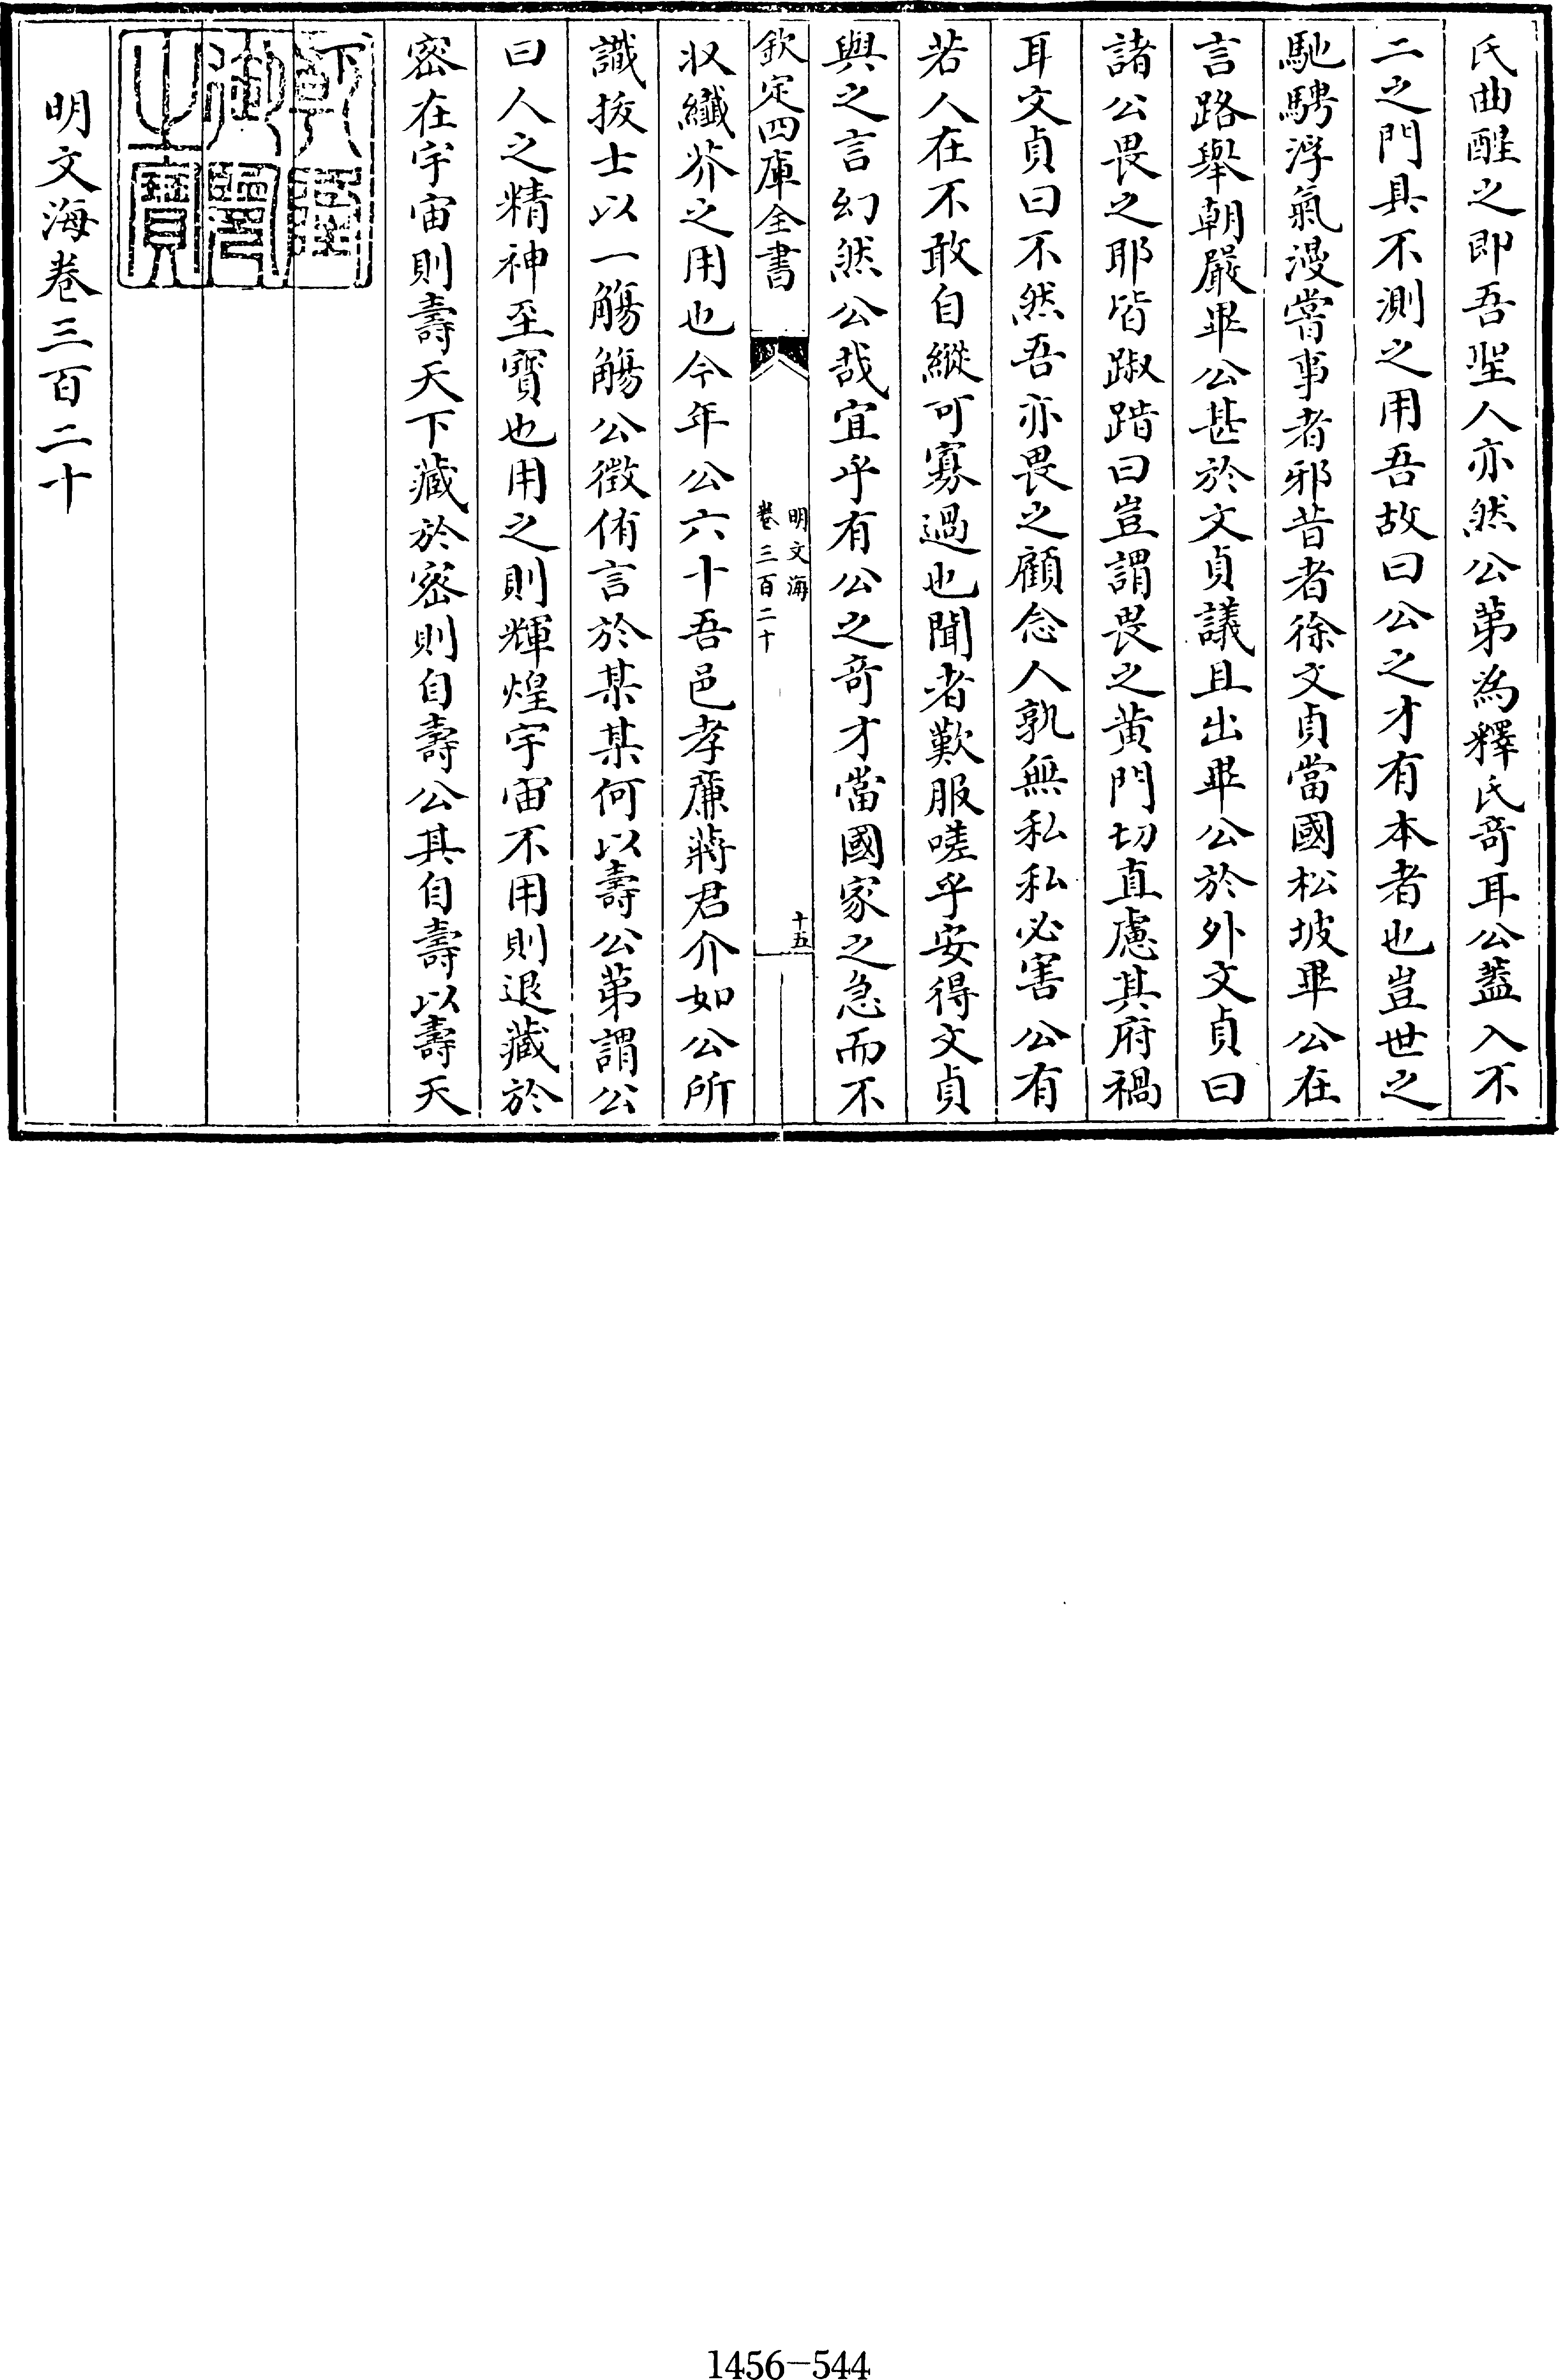 氏曲醒之即吾聖人亦然公第為釋氏竒耳公葢入不
二之門具不測之用吾故曰公之才有本者也豈世之
馳騁浮氣漫嘗事者邪昔者徐文貞當國松坡畢公在
言路舉朝嚴畢公甚於文貞議且出畢公於外文貞曰
諸公畏之耶皆踧踖曰豈謂畏之黄門切直慮其府禍
耳文貞曰不然吾亦畏之顧念人孰無私私必害公有
若人在不敢自縱可寡過也聞者歎服嗟乎安得文貞
與之言幻然公哉宜乎有公之竒才當國家之急而不
欽定四庫全書
明文海
卷三百二十
十五
収纖芥之用也今年公六十吾邑孝廉蔣君介如公所
識拔士以一觴觴公徵侑言於某某何以壽公第謂公
曰人之精神至寶也用之則輝煌宇宙不用則退藏於
密在宇宙則壽天下藏於密則自壽公其自壽以壽天
下
乾隆御覽之寶
明文海卷三百二十
1456-544